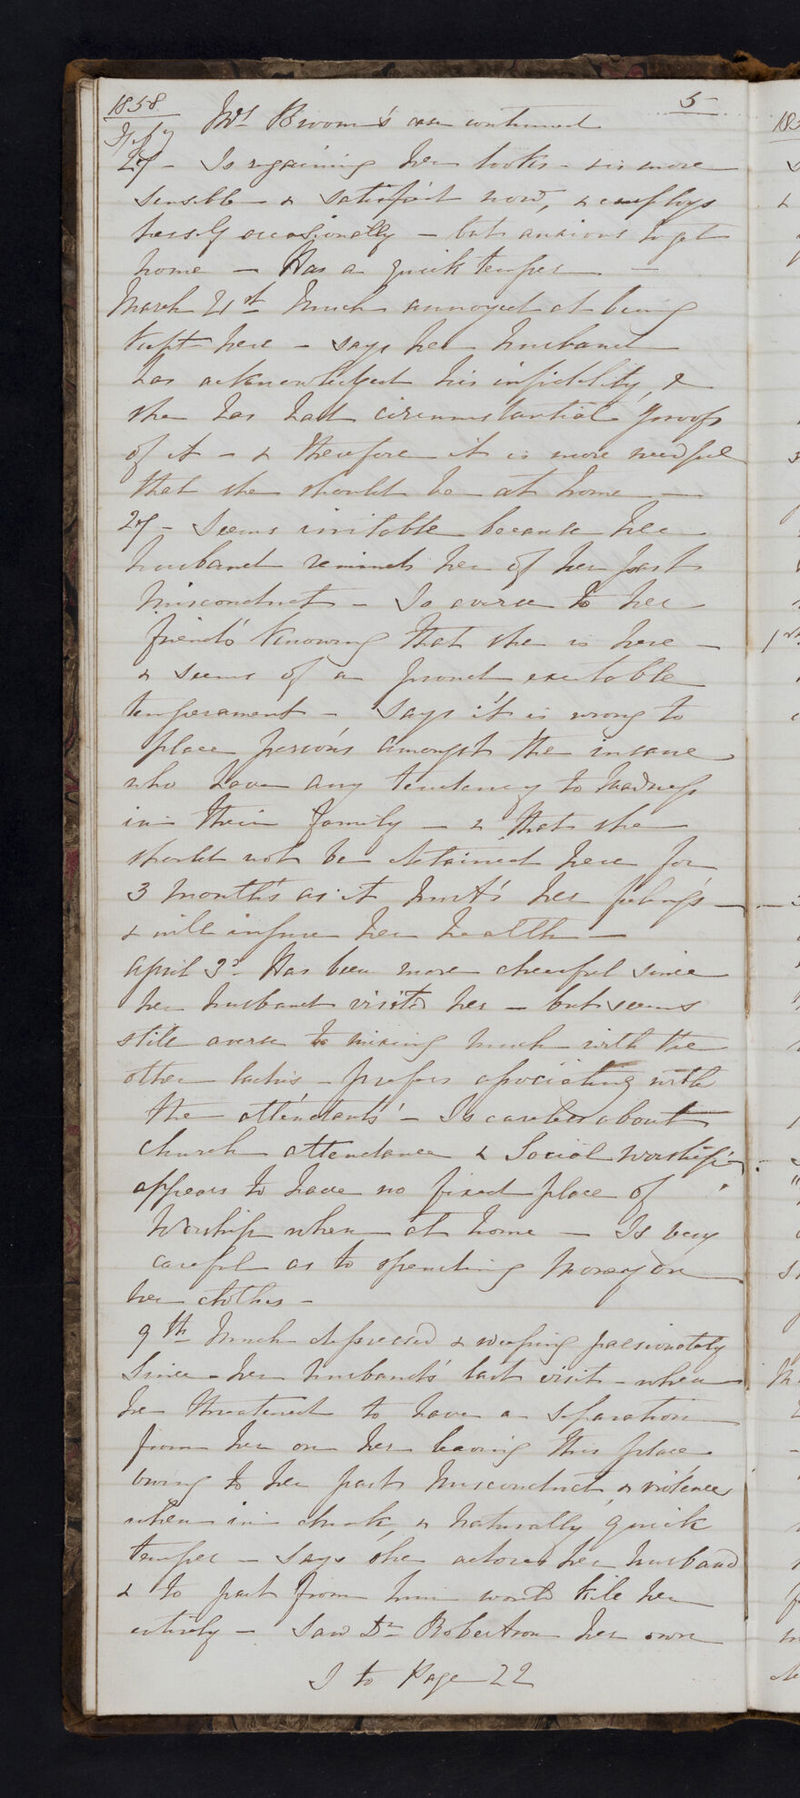 1858 5
Feby Mrs Broom's case continued
27 - Is regaining her looks - & is more
sensible & satisfied now, & employs
herself occasionally - but anxious to get
home - Has a quick temper -
March 21st Much annoyed at being
kept here - says her husband
has acknowledged his infidelity, &
she has had circumstantial proofs
of it - & therefore it is more needful
that she should be at home -
27 - Seems irritable because her
husband reminds her of her past
misconduct - Is averse to her
friends knowing that she is here -
& seems of a proud excitable
temperament - Says it is wrong to
place persons amongst the insane
who have any tendency to madness
in their family - & that she
should not be detained here for
3 months as it hurts her feelings -
& will injure her health -
April 3d Has been more cheerful since
her husband visited her - but seems
still averse to mixing much with the
other ladies - prefers associating with
the attendants - Is careless about
church attendance & Social worship -
appears to have no fixed place of
Worship when at home - Is very
careful as to spending money on
her clothes -
9th Much depressed & weeping passionately
since her husband's last visit - when
he threatened to have a separation
from her on her leaving this place
owing to her past misconduct & violence
when in drink, & naturally quick
temper - Says she adores her husband
& to part from him would kill her
entirely - Saw Dr Robertson her own
to Page 22